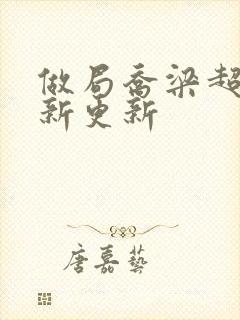 做局乔梁超
新更新
唐嘉艺